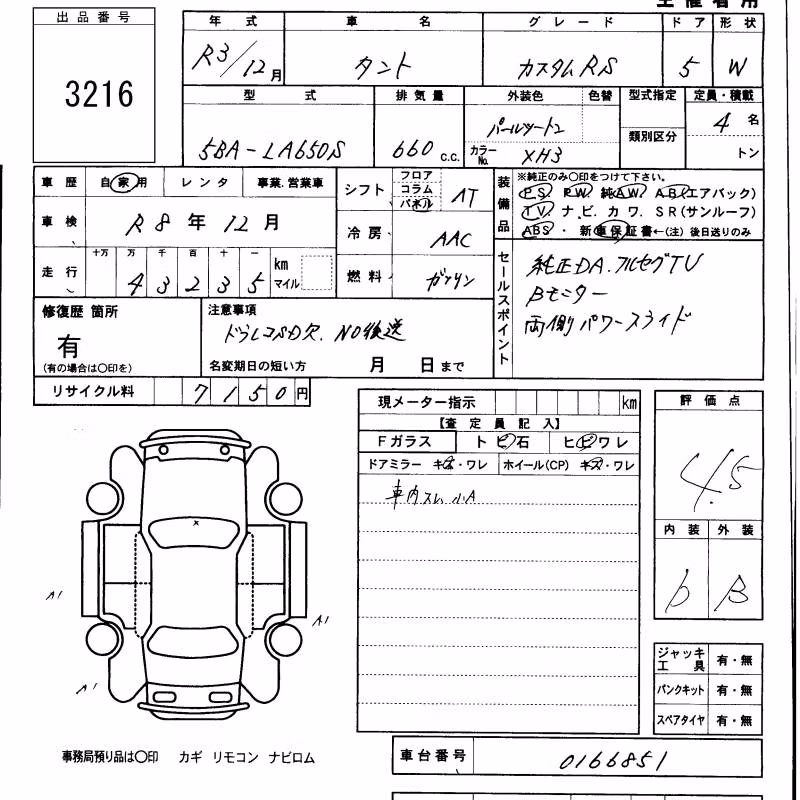 出品番号
3216
年式 車名 グレード ドア 形状
R3/12月 タント カスタムRS 5 W
型式 排気量 外装色 色替 型式指定 定員・積載
5BA-LA650S 660 c.c. パールツートン カラーNo. XH3 類別区分 4名 トン
車歴 自家用 レンタ 事業.営業車
車検 R8年12月
走行 十万 万 千 百 十 一
43235 km マイル
シフト フロア コラム パネル AT
冷房 AAC
燃料 ガソリン
装備品
※純正のみ〇印をつけて下さい。
P.S. P.W. 純A.W. A.B.(エアバック)
T.V. ナ.ビ. カ ワ. S R (サンルーフ)
ABS ・ 新車保証書←(注) 後日送りのみ
セールスポイント
純正DA.フルセグTV
Bモニター
両側パワースライド
修復歴 箇所
有
(有の場合は〇印を)
注意事項
ドラレコSD欠. ND後送
名変期日の短い方 月 日まで
リサイクル料 7150円
現メーター指示 km
【査定員記入】
Fガラス トビ石 ヒビワレ
ドアミラー キズ・ワレ ホイール(CP) キズ・ワレ
車内スレ 小A
評価点
4.5
内装 外装
b B
A1
A1
A1
ジャッキ工具 有・無
パンクキット 有・無
スペアタイヤ 有・無
事務局預り品は〇印 カギ リモコン ナビロム
車台番号 0166851